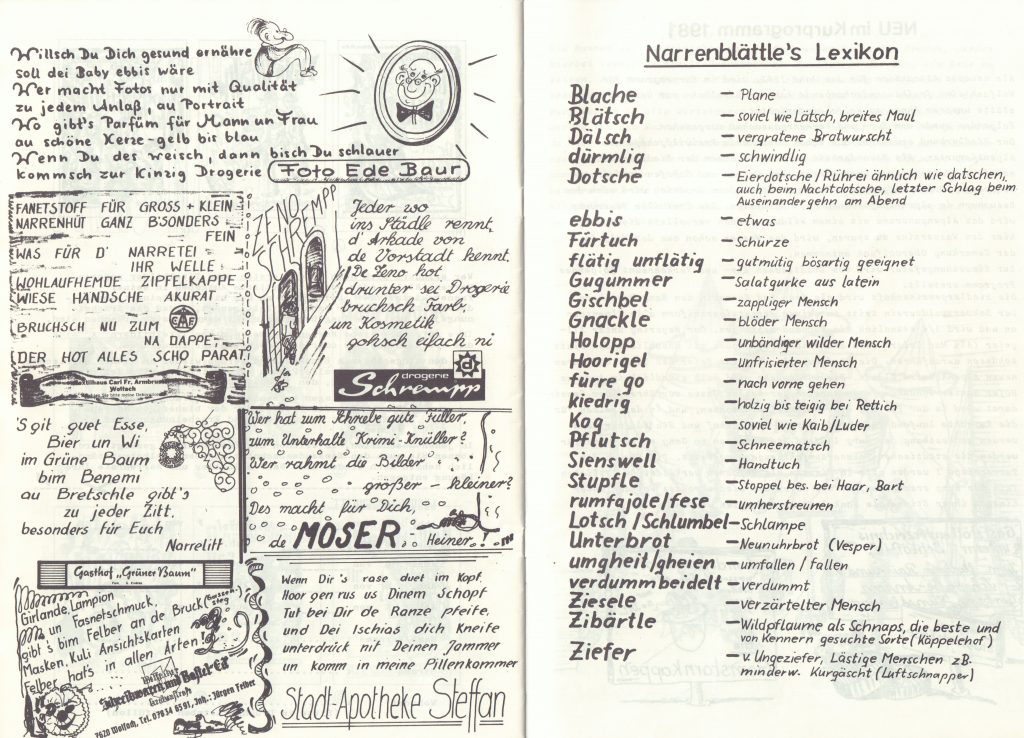 Willsch Du Dich gesund ernähre
soll dei Baby ebbis wäre
Wer macht Fotos nur mit Qualität
zu jedem Anlaß, au Portrait
Wo gibt's Parfüm für Mann un Frau
au schöne Kerze gelb bis blau
Wenn Du des weisch, dann bisch Du schlauer
kommsch zur Kinzig Drogerie Foto Ede Baur
FANETSTOFF FÜR GROSS + KLEIN
NARRENHÜT GANZ B'SONDERS
FEIN
WAS FÜR D' NARRETEI
IHR WELLE
WOHLAUFHEMDE ZIPFELKAPPE
WIESE HANDSCHE AKURAT
BRUCHSCH NU ZUM
NA DAPPE,
DER HOT ALLES SCHO PARAT
Textilhaus Carl Fr. Armbruster
Wolfach
ZENO
SCHREMPP
Jeder wo
ins Städle rennt,
d' Arkade von
de Vorstadt kennt.
De Zeno hot
drunter sei Drogerie
bruchsch Farb,
un Kosmetik
gohsch eifach ni
drogerie
Schrempp
d
'S git guet Esse,
Bier un Wi
im Grüne Baum
bim Benemi
au Bretschle gibt's
zu jeder Zitt,
besonders für Euch
Narrelitt
Gasthof „Grüner Baum"
Wer hat zum Schreibe gute Füller,
zum Unterhalte Krimi-Knüller?
Wer rahmt die Bilder
größer - kleiner?
Des macht für Dich,
de MOSER, Heiner!
Girlande, Lampion
un Fasnetschmuck,
gibt's bim Felber an de Bruck
Masken, Kuli Ansichtskarten
Felber hat's in allen Arten!
Schreibwaren und Bastel-Eck
7620 Wolfach, Tel. 07834 6591, Inh.: Jürgen Felber
Wenn Dir's rase duet im Kopf,
Hoor gen rus us Dinem Schopf
Tut bei Dir de Ranze pfeife,
und Dei Ischias dich Kneife
unterdrück nit Deinen Jammer
un komm in meine Pillenkammer
Stadt-Apotheke Steffan
Narrenblättle's Lexikon
Blache – Plane
Blätsch – soviel wie Lätsch, breites Maul
Dälsch – vergratene Bratwurscht
dürmlig – schwindlig
Dotsche – Eierdotsche / Rührei ähnlich wie datschen,
auch beim Nachtdotsche, letzter Schlag beim
Auseinandergehn am Abend
ebbis – etwas
Fürtuch – Schürze
flätig unflätig – gutmütig bösartig geeignet
Gugummer – Salatgurke aus latein
Gischbel – zappliger Mensch
Gnackle – blöder Mensch
Holopp – unbändiger wilder Mensch
Hoorigel – unfrisierter Mensch
fürre go – nach vorne gehen
kiedrig – holzig bis teigig bei Rettich
Kog – soviel wie Kaib/Luder
Pflutsch – Schneematsch
Sienswell – Handtuch
Stupfle – Stoppel bes. bei Haar, Bart
rumfajole/fese – umherstreunen
Lotsch / Schlumbel – Schlampe
Unterbrot – Neunuhrbrot (Vesper)
umgheil/gheien – umfallen / fallen
verdummbeidelt – verdummt
Ziesele – verzärtelter Mensch
Zibärtle – Wildpflaume als Schnaps, die beste und
von Kennern gesuchte Sorte (Käppelehof)
Ziefer – v. Ungeziefer, Lästige Menschen zB.
minderw. Kurgäscht (Luftschnapper)